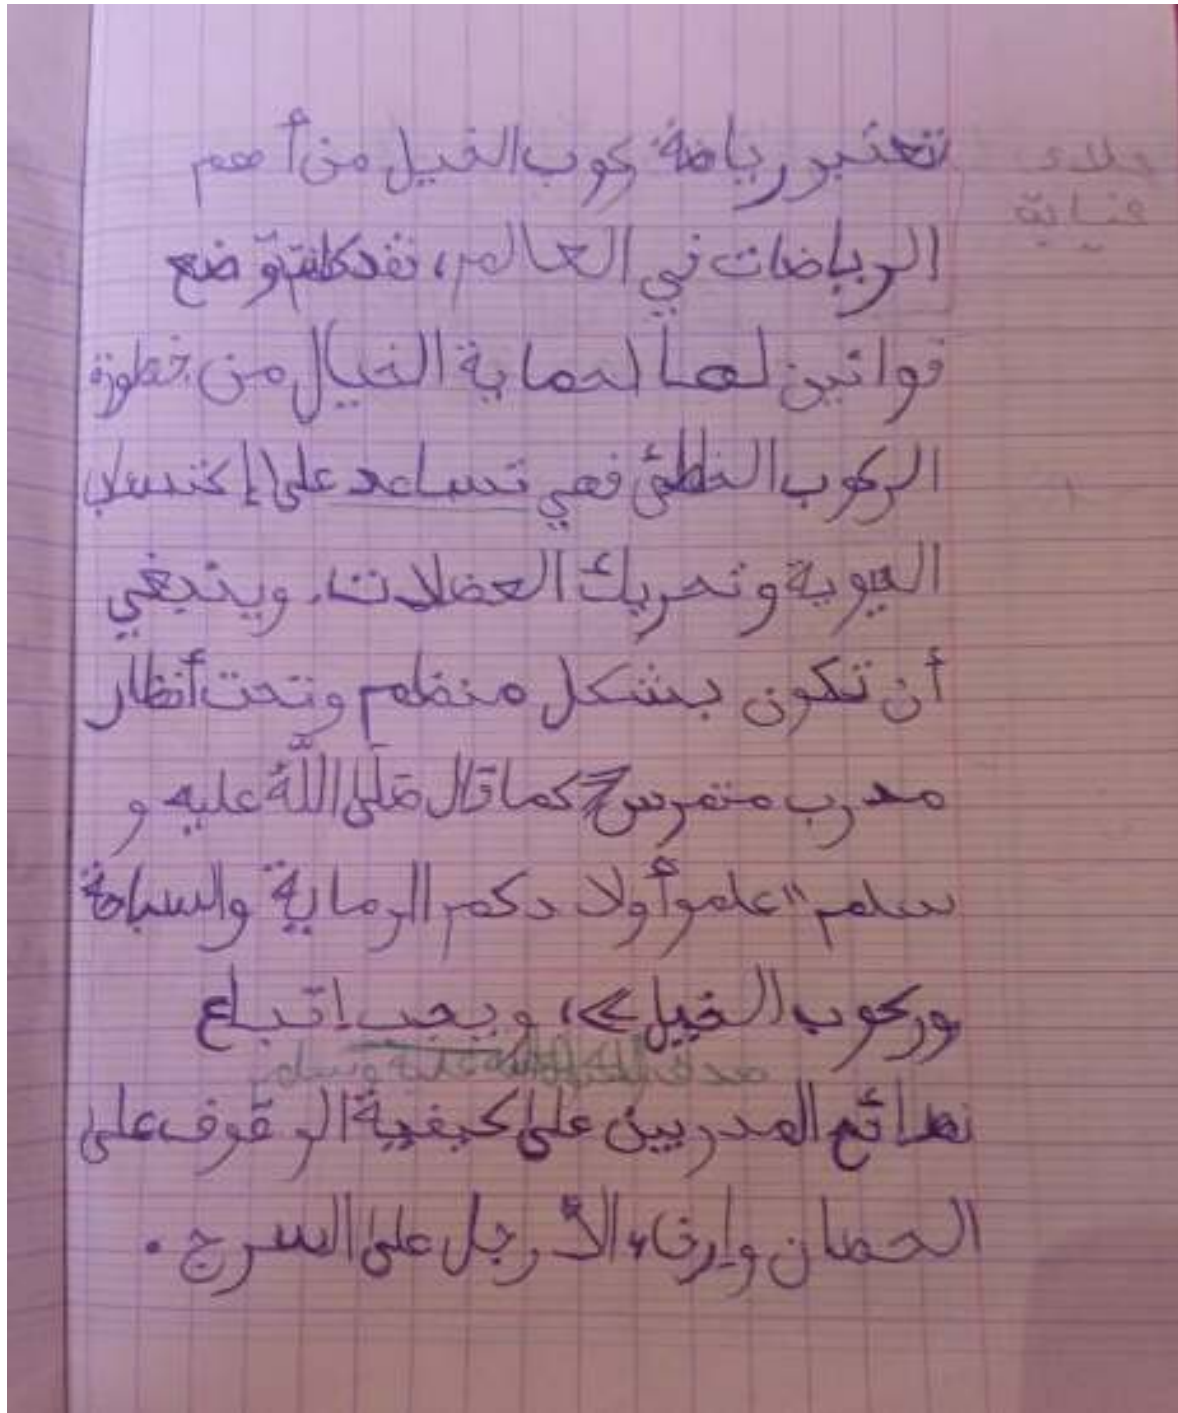 تعتبر رياضة ركوب الخيل من أهم
الرياضات في العالم، فقد تم وضع
قوانين لها لحماية الخيال من خطورة
الركوب الخاطئ فهي تساعد على إكتساب
الحيوية وتحريك العضلات. وينبغي
أن تكون بشكل منظم وتحت أنظار
مدرب متمرس كما قال صَلَّى اللَّهُ عليه و
سلم "علموا أولا دكم الرماية والسباحة
وركوب الخيل»، ويجب إتباع
نصائح المدربين على كيفية الوقوف على
الحصان وإرخاء الأرجل على السرج.